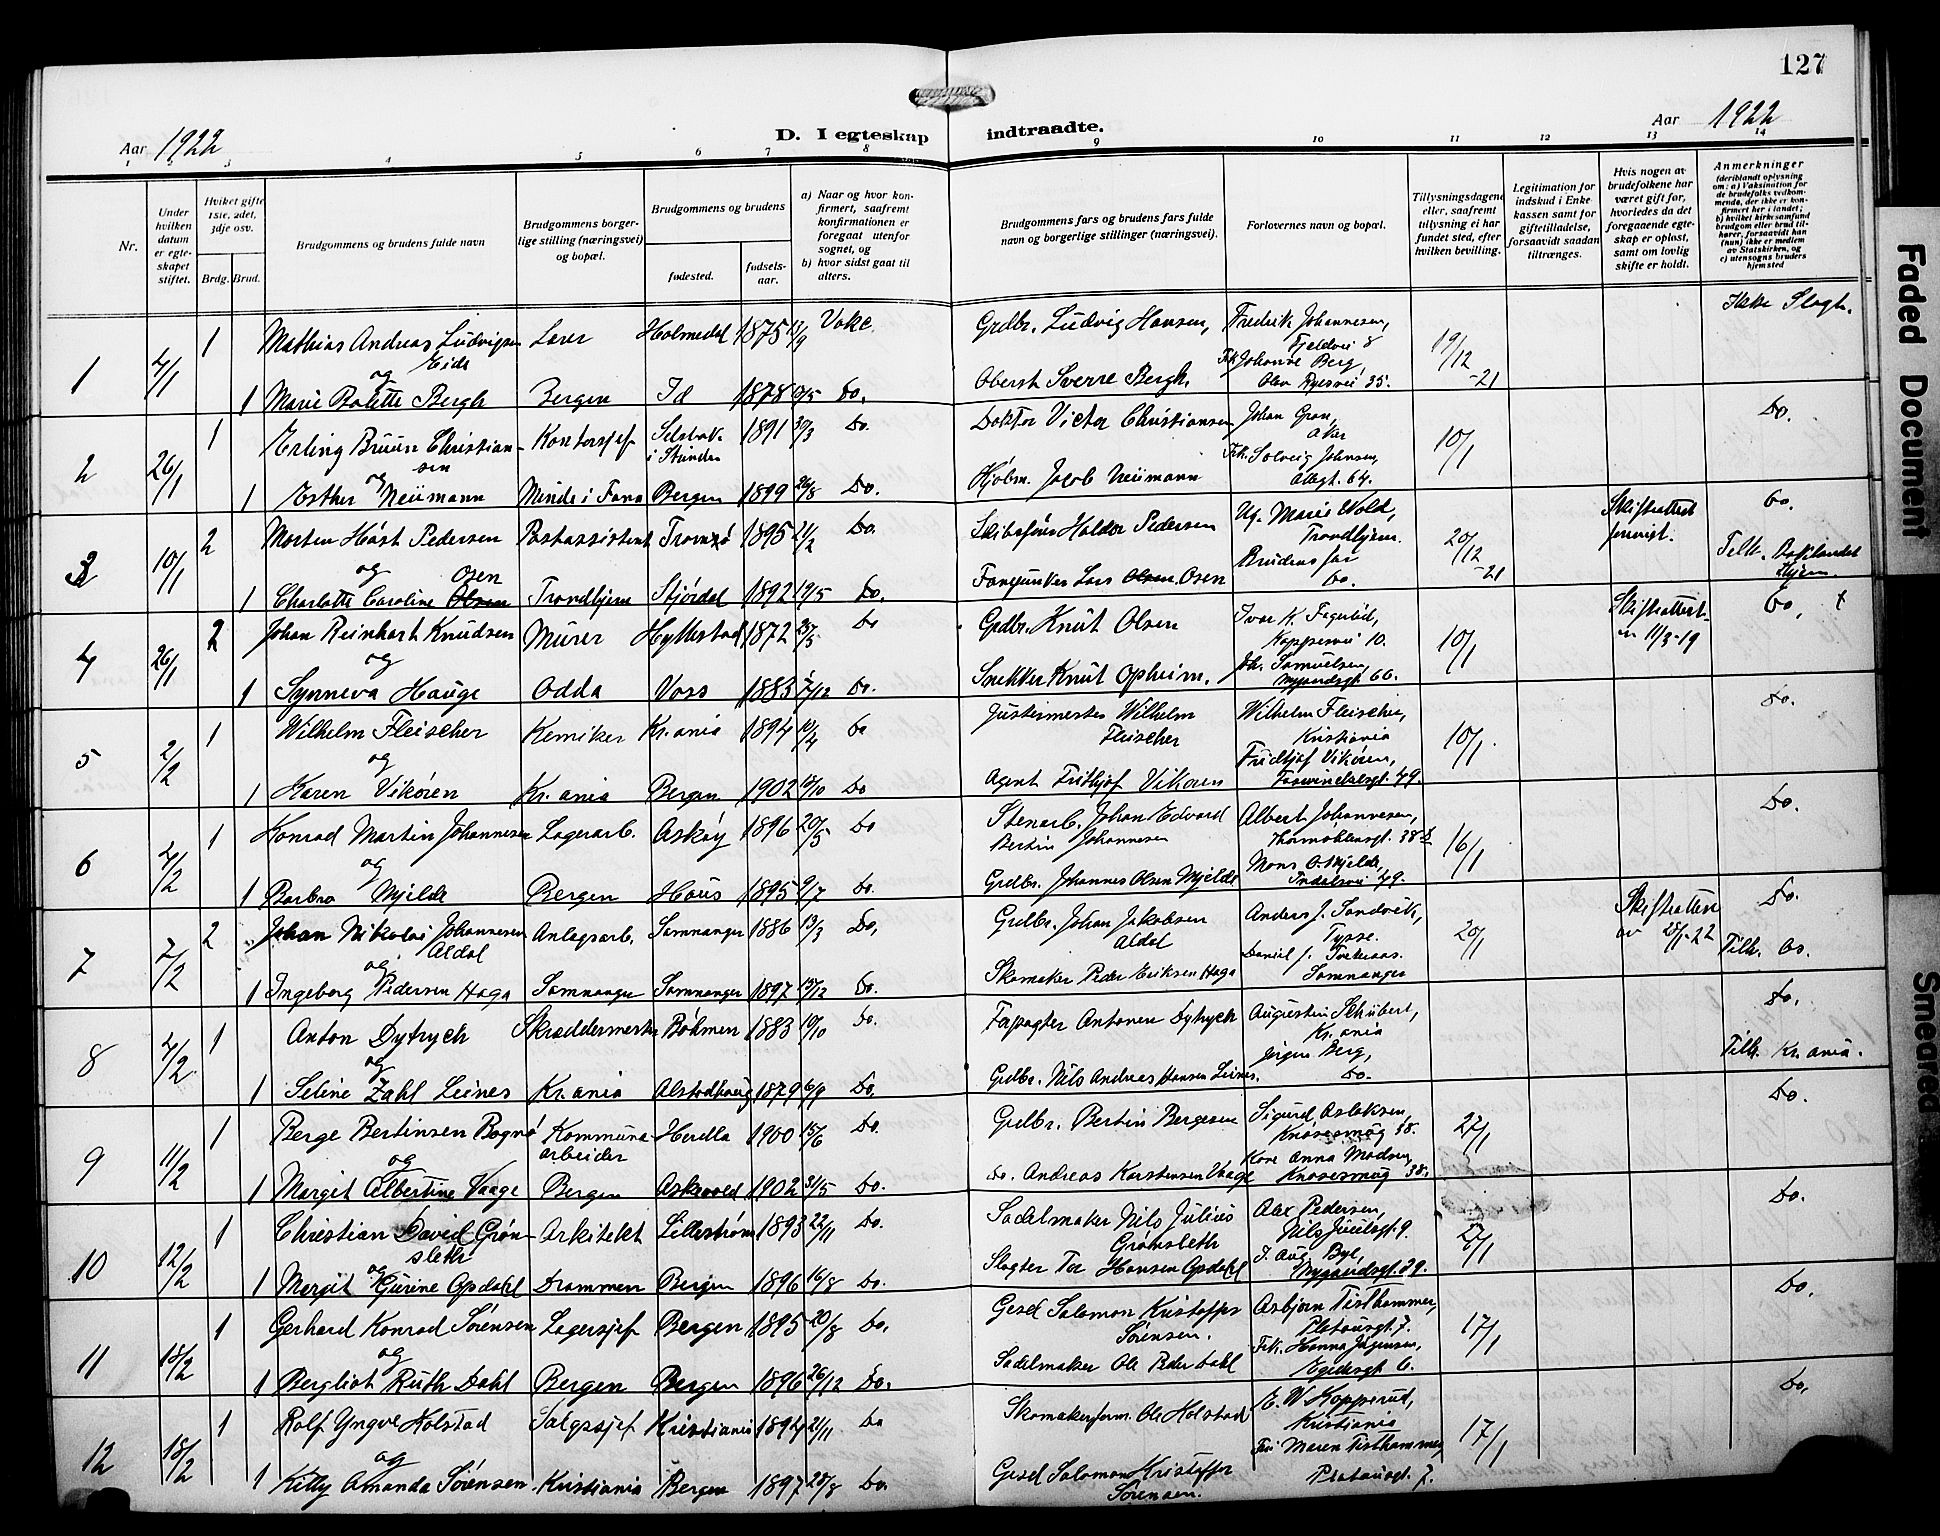 127
Aar 1922
D. I egteskap indtraadte.
Aar 1922
1 2 3 4 5 6 7 8 9 10 11 12 13 14
Nr.
Under hvilken datum er egteskapet stiftet.
Hvilket gifte 1ste, 2det, 3dje osv.
Brdg. Brud.
Brudgommens og brudens fulde navn
Brudgommens borgerlige stilling (næringsvei) og bopæl.
Brudgommens og brudens
fødested.
fødselsaar.
a) Naar og hvor konfirmert, saafremt konfirmationen er foregaat utenfor sognet, og
b) hvor sidst gaat til alters.
Brudgommens fars og brudens fars fulde navn og borgerlige stillinger (næringsvei).
Forlovernes navn og bopæl.
Tillysningsdagene eller, saafremt tillysning ei har fundet sted, efter hvilken bevilling.
Legitimation for indskud i Enkekassen samt for giftetilladelse, forsaavidt saadan tiltrænges.
Hvis nogen av brudefolkene har været gift før, hvorledes da det foregaaende egteskap er opløst, samt om lovlig skifte er holdt.
Anmerkninger
(deriblandt oplysning om: a) Vaksination for de brudefolks vedkommende, der ikke er konfirmert her i landet; b) hvilket kirkesamfund brudgom eller brud tilhører, forsaavidt han (hun) ikke er medlem av Statskirken, og c) utensogns bruders hjemsted
1 4/1 1 Mathias Andreas Ludvigsen Eide Lærer Holmedal 1875 13/9 Vokc. Grdbr. Ludvig Hansen, Fredrik Johannesen, Fjeldvei 8 19/12-21 Ikke Slegt.
og
1 Marie Bolette Bergh Bergen Id 1878 9/5 Do. Oberst Sverre Bergh. Frk. Johanne Berg, Olav Ryesvei 35.
2 26/1 1 Erling Bruun Christiansen Kontorsjef 1891 30/3 Do. Doktor Victor Christiansen Johan Gran, Aker 10/1 Do.
og
1 Esther Neumann Minde i Fana Bergen 1899 26/8 Do. Jacob Neumann Frk. Solveig Johnsen, Allegt. 64.
3 10/1 2 Morten Høst Pedersen Postassistent Tromsø 1895 21/2 Do. Skibsfører Haldor Pedersen Marie Wold, Trondhjem. 20/12-21 Skifteattest Do.
og
1 Charlotte Caroline Olsen Osen Trondhjem Stjørdal 1892 19/5 Do. Lars Olsen Osen Brudens far Do. Tilh.
4 26/1 2 Johan Reinhart Knudsen Murer Hyllestad 1872 Do Grdbr. Knut Olsen Ivar K. Fagerlid, Koppervei 10. 10/1 Skifteattest 11/3-19 Do.
og
1 Synneva Hauge Odda Voss 1883 7/12 Do. Snekker Knut Opheim. Joh. Samuelsen, Nygaardsgt. 66.
5 2/2 1 Wilhelm Fleischer Kemiker Kr.ania 1894 10/4 Do Justermester Wilhelm Fleischer Wilhelm Fleischer, Kristiania 10/1. Do.
og
1 Karen Vikøren Kr.ania Bergen 1902 Do Agent Frithjof Vikøren Fridtjof Vikøren, 49.
6 4/2 1 Konrad Martin Johannesen Lagerarb. Askøy 1896 20/5 Do Stenarb. Johan Edvard Bertin Johannesen Albert Johannesen, Thormøhlensgt. 38 16/1 Do.
og
1 Barbro Mjelde Bergen Haus 1895 9/7 Do. Grdbr. Johannes Olsen Mjelde Mons O. Mjelde, Indalsvei 49.
7 7/2 2 Johan Nikolai Johannesen Aldal Anlægsarb. Samnanger 1886 13/3 Do. Grdbr. Johan Jakobsen Aldal Anders J. Sandvik, Tysse. 20/1 Skifteattest av 25/1-22 Do.
og
1 Ingeborg Pedersen Haga Samnanger Samnanger 1897 13/12 Do. Skomaker Peder Eriksen Haga Daniel J. Samnanger Tilh. Os.
8 4/2 1 Anton Dytrych Skræddermester Bøhmen 1883 19/10 Do. Antonin Dytrych Augustin Schubert, Kr.ania Do.
og
1 Seline Zahl Leines Kr.ania Alstadhaug 1879 6/9 Do. Grdbr. Nils Andreas Hansen Leines. Jørgen Berg, Do. Tilh. Kr.ania.
9 11/2 1 Berge Bertinsen Bognø Kommunearbeider Herdla 1900 15/6 Do. Grdbr. Bertin Bergesen Sigurd Aslaksen, Knøsesmug 38. 27/1 Do.
og
1 Margit Albertine Vaage Bergen Askvold 1902 31/5 Do. Do. Andreas Karstensen Vaage Anna Madsen, Knøsesmug 38.
10 12/2 1 Christian David Grønsleth Arkitekt Lillestrøm 1893 22/11 Do. Sadelmaker Nils Julius Grønsleth Alex Pedersen, Nils Juelsgt. 9. 27/1 Do.
og
1 Margit Gurine Opdahl Drammen Bergen 1896 16/8 Do. Slagter Tor Hansen Opdahl J. Aug. Bye, Nygaardsgt. 29.
11 18/2 1 Gerhard Konrad Sørensen Lagersjef Bergen 1895 20/8 Do. Salomon Kristoffer Sørensen. Asbjørn Tisthammer, Platousgt. 7. 17/1 Do.
og
1 Bergliot Ruth Dahl Bergen Bergen 1896 26/12 Do. Sadelmaker Ole Peder Dahl Frk. Hanna Jørgensen, Egedesgt 6.
12 18/2 1 Rolf Yngve Holstad Salgssjef Kristiania 1894 21/11 Do Skomakerform. Ole Holstad E. W. Kopperud, Kristiania 17/1 Do.
og
1 Kitty Amanda Sørensen Kristiania Bergen 1897 28/8 Do. Salomon Kristoffer Sørensen. Maren Tisthammer Platousgt. 7.
Faded Document
Smeared